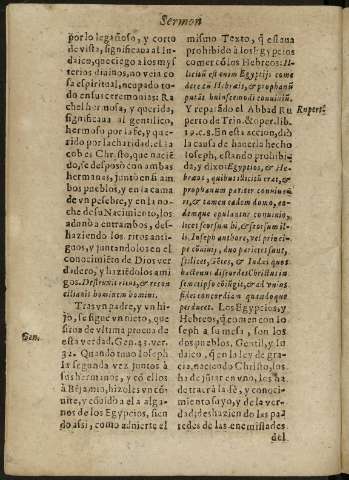 Sermon
por lo legañoso, y corto
de vista, significaua al Iu-
daico, que ciego a los mys-
terios diuinos, no veia co-
sa espiritual, ocupado to-
do en sus ceremonias: Ra
chel hermosa, y querida,
significaua al gentilico,
hermoso por la fè, y que-
rido por la charidad. el Ia
cob es Christo, que nacié
do, se desposò con ambas
hermanas, juntò en si am
bos pueblos, y en la cama
de vn pesebre, y en la no-
che de su Nacimiẽto, los
adunò a entrambos, des-
haziendo los ritos anti-
guos, y juntandolos en el
conocimiẽto de Dios ver
dadero, y haziẽdolos ami
gos. Destruxit ritus, & recon
cilianis hominem homini.
Tras vn padre, y vn hi-
jo, se sigue vn nieto, que
siruos de vltima prueua de
esta verdad. Gen. 43. ver.
32. Quando tuuo Ioseph
la segunda vez juntos à
sus hermanos, y cõ ellos
à Bẽjamin, hizoles vn cõ-
uite, y cõbidò a el a algu-
nos de los Egypcios, sien
do assi, como aduierte el
Gen.
mismo Texto, q̃ estaua
prohibido à los Egypcios
comer cõ los Hebreos: Il-
licitũ est enim Egyptijs come
dere cũ Hebræis, & prophanũ
putãt huiuscemodi conuiuiũ.
Y reparãdo el Abbad Ru
perto de Trin. & oper. lib.
19. c. 8. En esta accion, diò
la causa de hauerla hecho
Ioseph, estando prohibi-
da, y dixo: Egyptios, & He-
bræos, quibus illicitũ erat, &
prophanum pariter conuiuiũ
es, & tamen eadem domo, eo-
demque epulantes conuiuio,
licet seorsum hi, & seorsum il-
li. Ioseph authore, vel princi-
pe cõuiuij, duo parietes sunt,
scilicet, Gẽtes, & Iudæi quos
hactenus discordes Christus in
semetipso cõiũgit, & ad vnius
fidei concordiam quandoque
perducet. Los Egypcios, y
Hebreos, q̃ comen con Io
seph a su mesa, son los
dos pueblos, Gentil, y Iu
daico, q̃ en la ley de gra-
cia, naciendo Christo, los
ha de jũtar en vno, les ha
de traer à la fè, y conoci-
miento suyo, y de la ver-
dad; deshaziendo las pa-
redes de las enemistades
del
Rupert.